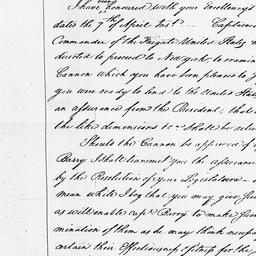 been
I have honoured with your Excellency's
dated the 7th of April Inst. Captain
Commander of the Frigate United States
directed to proceed to New York, to examine
Cannon which you have been pleased to
you were ready to lend to the United
an assurance from the President, that
the like dimensions &c shall be
Should the Cannon be approved of
Barry I shall transmit you the assurance
by the Resolution of your Legislature
mean while I beg that you may give
as will enable Capt. Barry to make
mination of them as he may think
certain their Effectiveness fitness for the